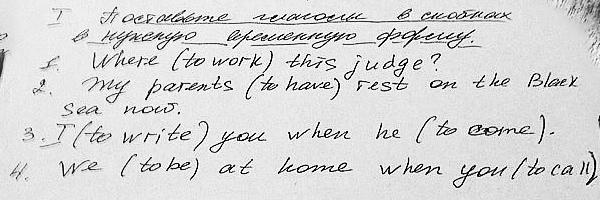 I Поставьте глаголы в скобках
в нужную временную форму.
1. Where (to work) this judge?
2. My parents (to have) rest on the Black
sea now.
3. I (to write) you when he (to come).
4. We (to be) at home when you (to call)